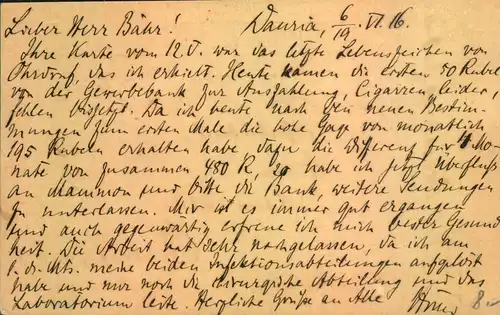 Lieber Herr Bähr! Dauria, 6/19. VI. 16.
Ihre Karte vom 12.V. war das letzte Lebenszeichen von
Ohrdruf, das ich erhielt. Heute kamen die ersten 50 Rubel
von der Gewerbebank zur Auszahlung, Cigarren, leider,
fehlen bis jetzt. Da ich heute nach den neuen Bestim-
mungen zum ersten Male die hohe Gage von monatlich
195 Rubeln erhalten habe dazu die Differenz für 4 Mo-
nate von zusammen 480 R, so habe ich jetzt Überfluß
an Mammon und bitte die Bank, weitere Sendungen
zu unterlassen. Mir ist es immer gut ergangen
und auch gegenwärtig erfreue ich mich bester Gesund
heit. Die Arbeit hat sehr nachgelassen, da ich am
1. ds. Mts. meine beiden Infektionsabteilungen aufgelöst
habe und nur noch die chirurgische Abteilung und das
Laboratorium leite. Herzliche Grüße an Alle
8